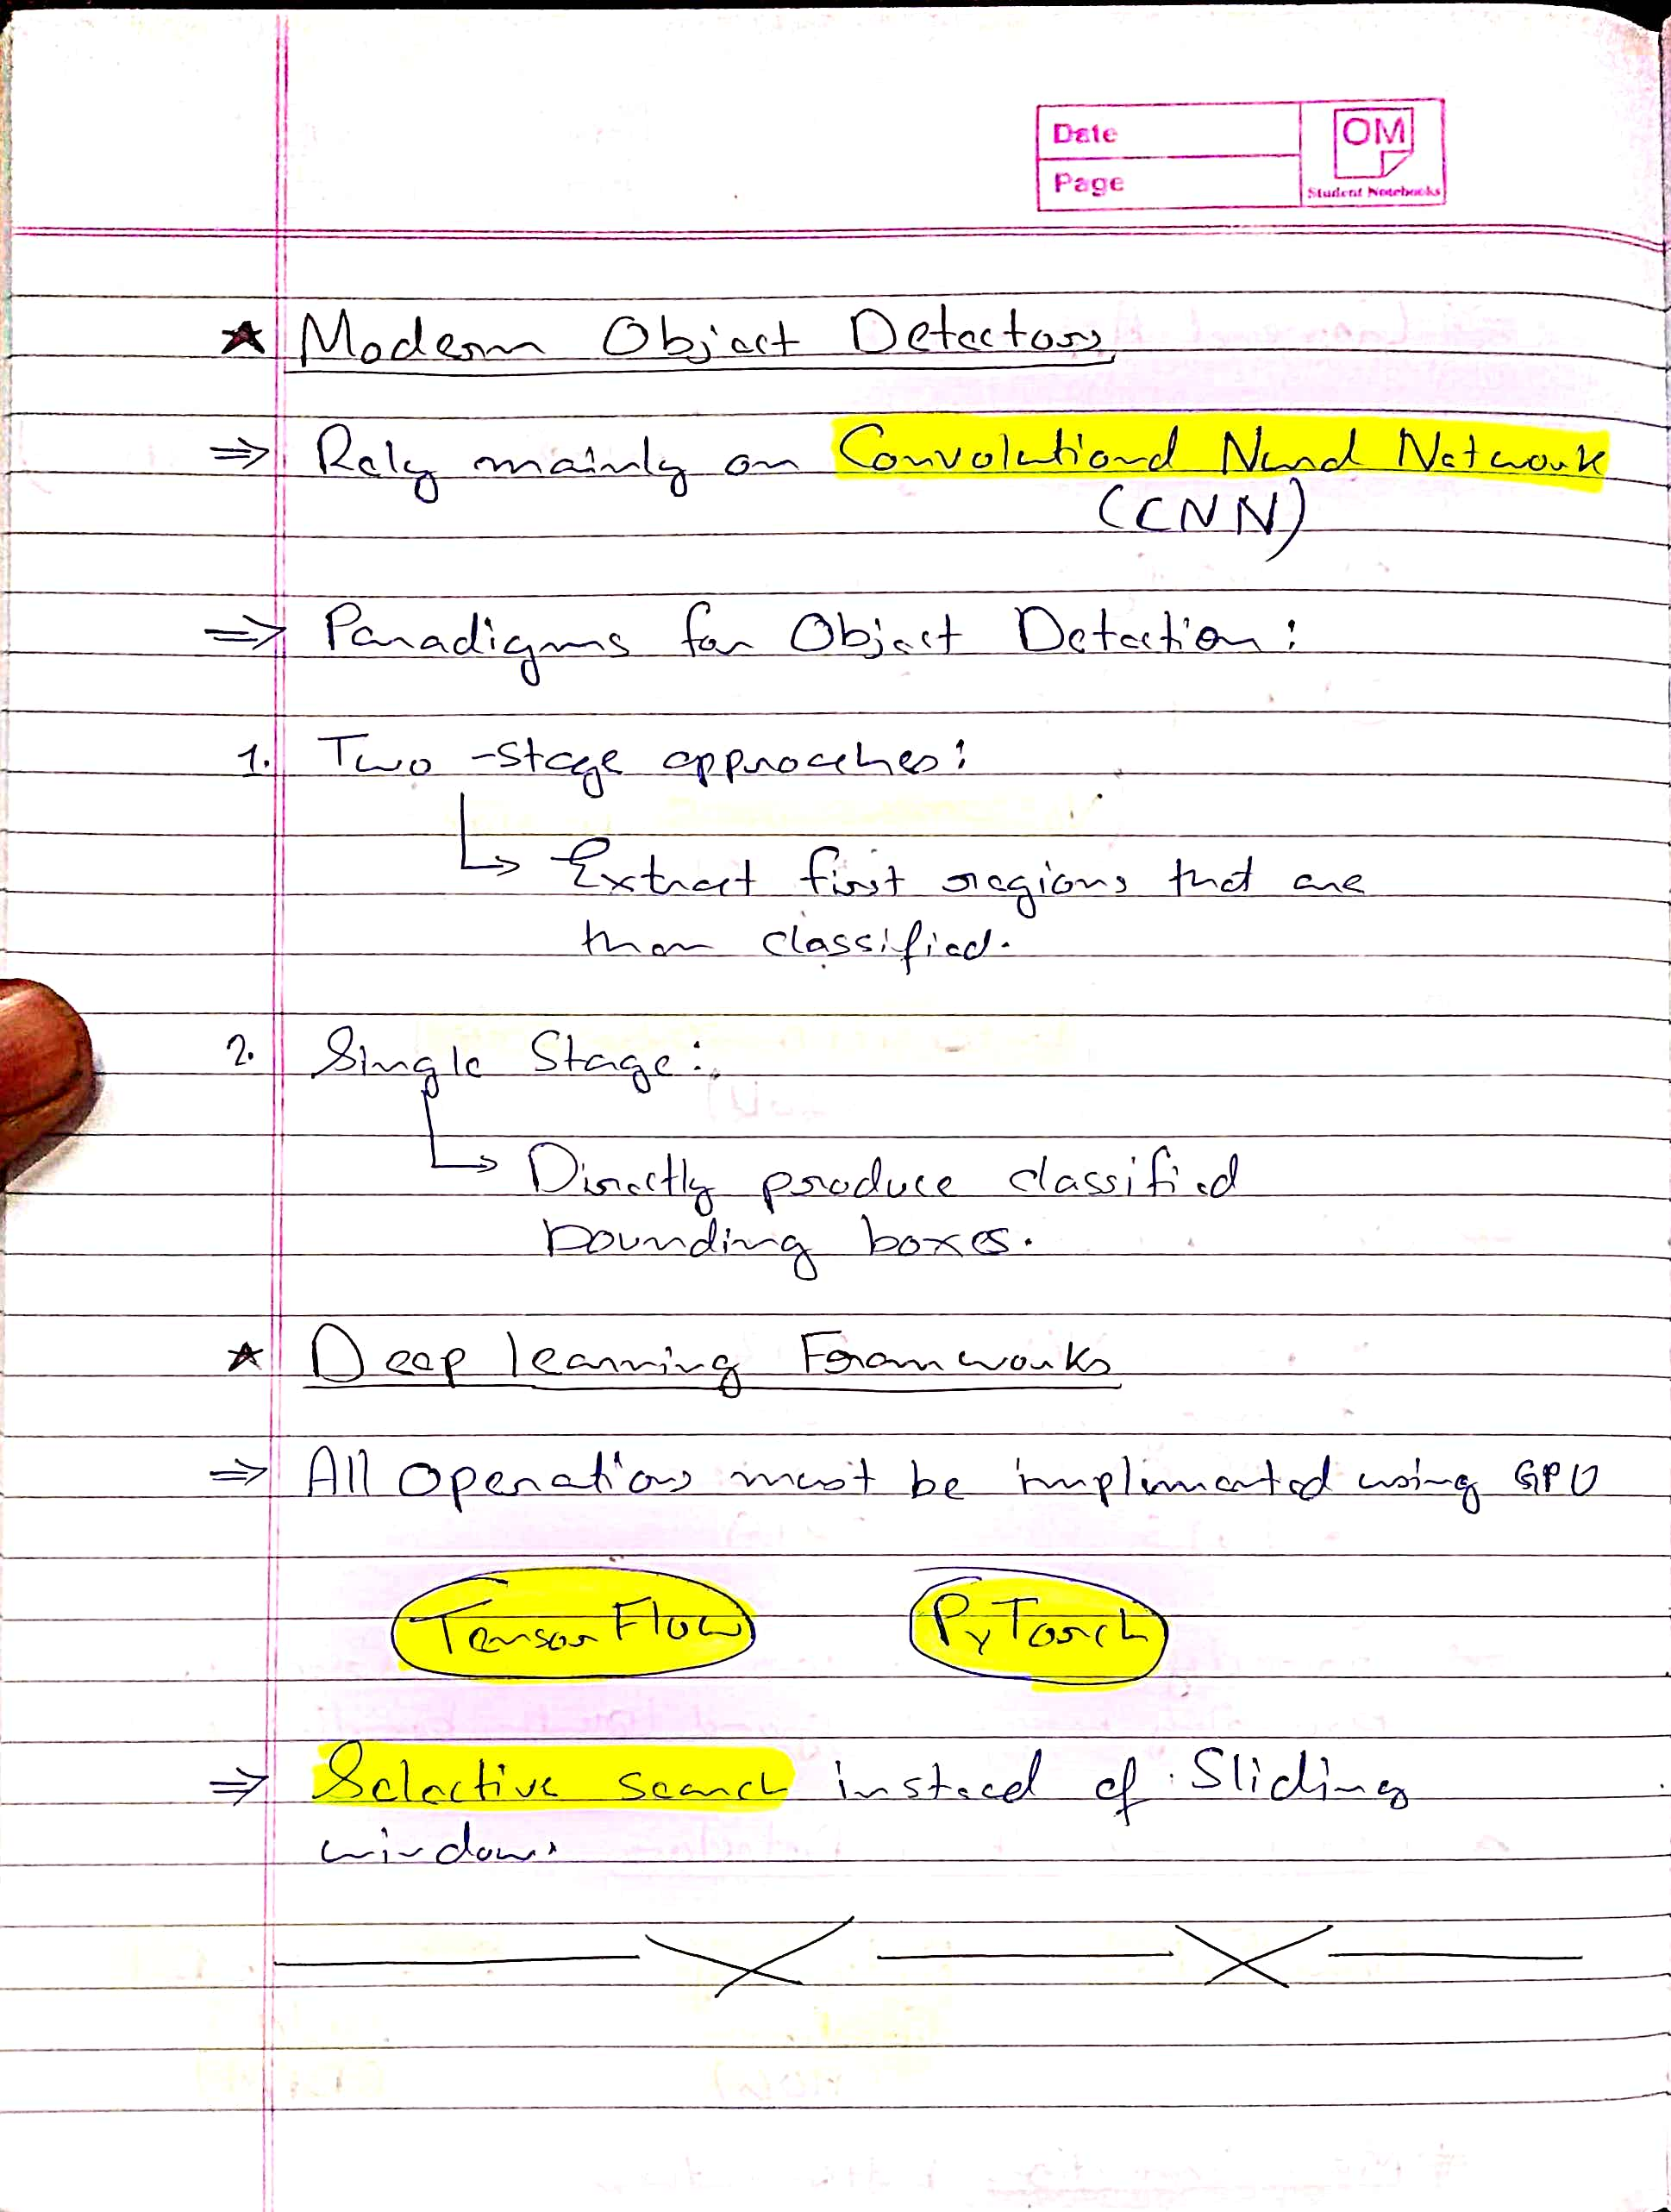 Date
Page
OM
Student Notebooks
★ Modern Object Detectors
⇒ Rely mainly on Convolutional Neural Network
(CNN)
⇒ Paradigms for Object Detection:
1. Two-stage approaches:
↳ Extract first regions that are
then classified.
2. Single Stage:
↳ Directly produce classified
bounding boxes.
★ Deep learning Frameworks
⇒ All Operations must be implemented using GPU
TensorFlow PyTorch
⇒ Selective search instead of Sliding
window.